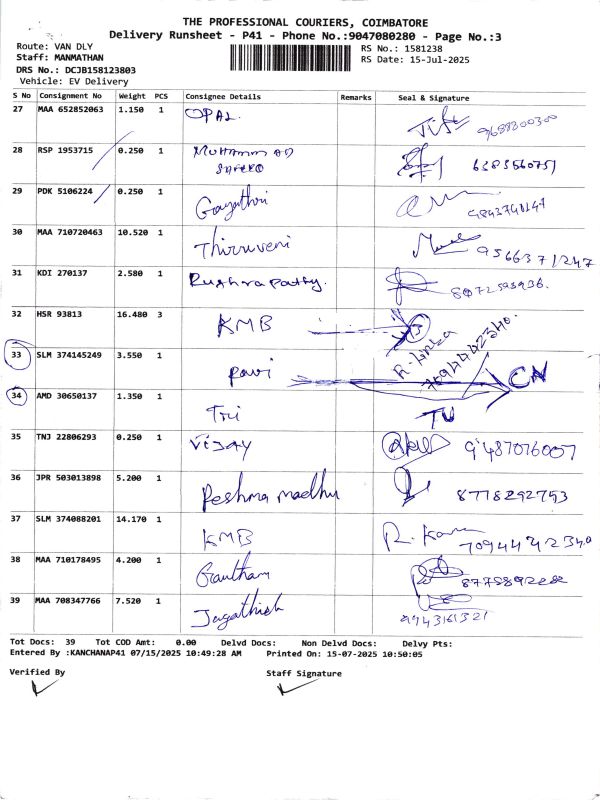 THE PROFESSIONAL COURIERS, COIMBATORE
Delivery Runsheet - P41 - Phone No.:9047080280 - Page No.:3
Route: VAN DLY
Staff: MANMATHAN
DRS No.: DCJB158123803
Vehicle: EV Delivery
RS No.: 1581238
RS Date: 15-Jul-2025
S No Consignment No Weight PCS Consignee Details Remarks Seal & Signature
27 MAA 652852063 1.150 1 OPAL
28 RSP 1953715 0.250 1 Muhammad
29 PDK 5106224 0.250 1 Gayathri
30 MAA 710720463 10.520 1 Thiruveni 9566371247
31 KDI 270137 2.580 1
32 HSR 93813 16.480 3 KMB 7094442340
33 SLM 374145249 3.550 1 Ravi CN
34 AMD 30650137 1.350 1 Tri
35 TNJ 22806293 0.250 1 Vijay 9487076007
36 JPR 503013898 5.200 1 Reshma madhu 8778292793
37 SLM 374088201 14.170 1 KMB 7094442340
38 MAA 710178495 4.200 1 Gautham
39 MAA 708347766 7.520 1 Jagathish
Tot Docs: 39 Tot COD Amt: 0.00 Delvd Docs: Non Delvd Docs: Delvy Pts:
Entered By :KANCHANAP41 07/15/2025 10:49:28 AM Printed On: 15-07-2025 10:50:05
Verified By Staff Signature